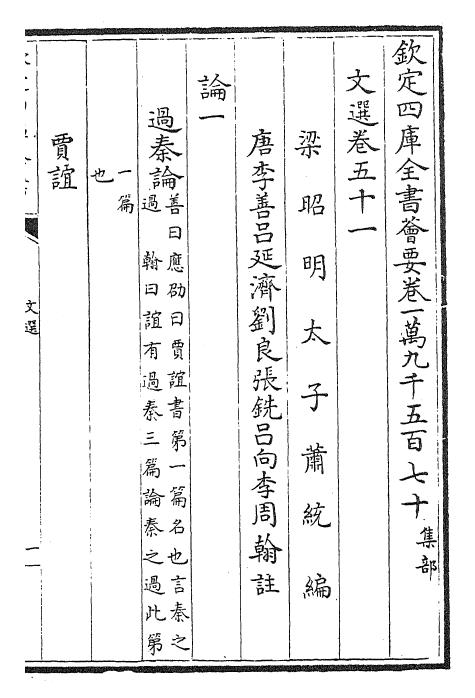 欽定四庫全書薈要卷一萬九千五百七十 集部
文選卷五十一
梁昭明太子蕭統編
唐李善吕延濟劉良張銑吕向李周翰註
論一
過秦論
善曰應劭曰賈誼書第一篇名也言秦之
過 翰曰誼有過秦三篇論秦之過此第
一篇
也
賈誼
文選
一